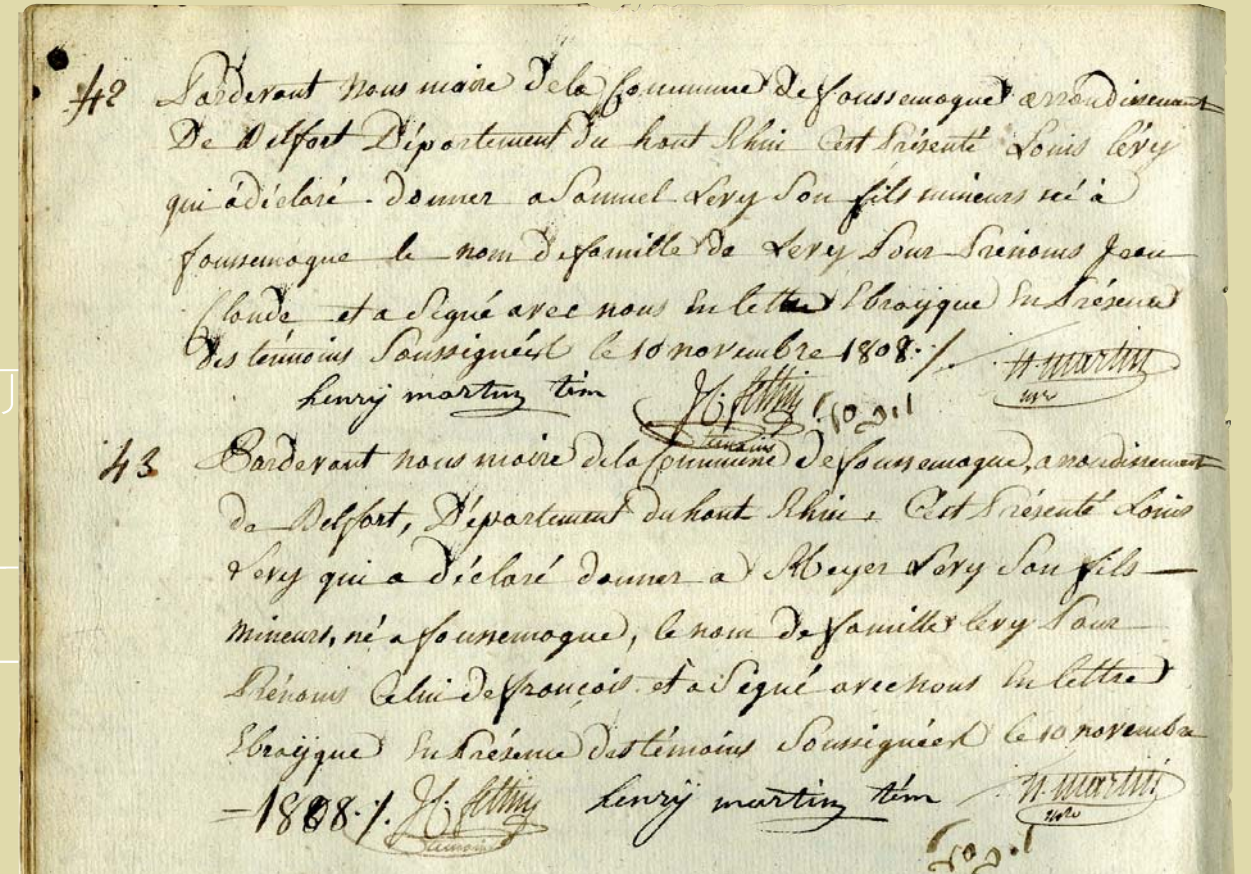 42 Pardevant Nous maire dela Commune de foussemagne arrondissement
De Belfort Département du haut Rhin C'est Présenté Louis lévy
qui a déclaré donner a Samuel Levy Son fils mineurs né à
foussemagne le nom de famille de Levy Pour Prénoms Jean
Claude et a Signé avec nous En lettre Ebrayque En Présence
des témoins Soussignéest le 10 novembre 1808 ./.
henry martin tém
témoin
n. martin
43 Pardevant nous maire dela Commune De foussemagne, arrondissement
de Belfort, Département du haut Rhin, C'est Présenté Louis
Levy qui a déclaré donner a Meyer Levy Son fils
mineurs, né a foussemagne, le nom De famille levy Pour
Prénoms Celui de françois et a Signé avec nous En lettre
Ebrayque En Présence des témoins Soussignéest le 10 novembre
1808 ./. témoin henry martin tém n. martin